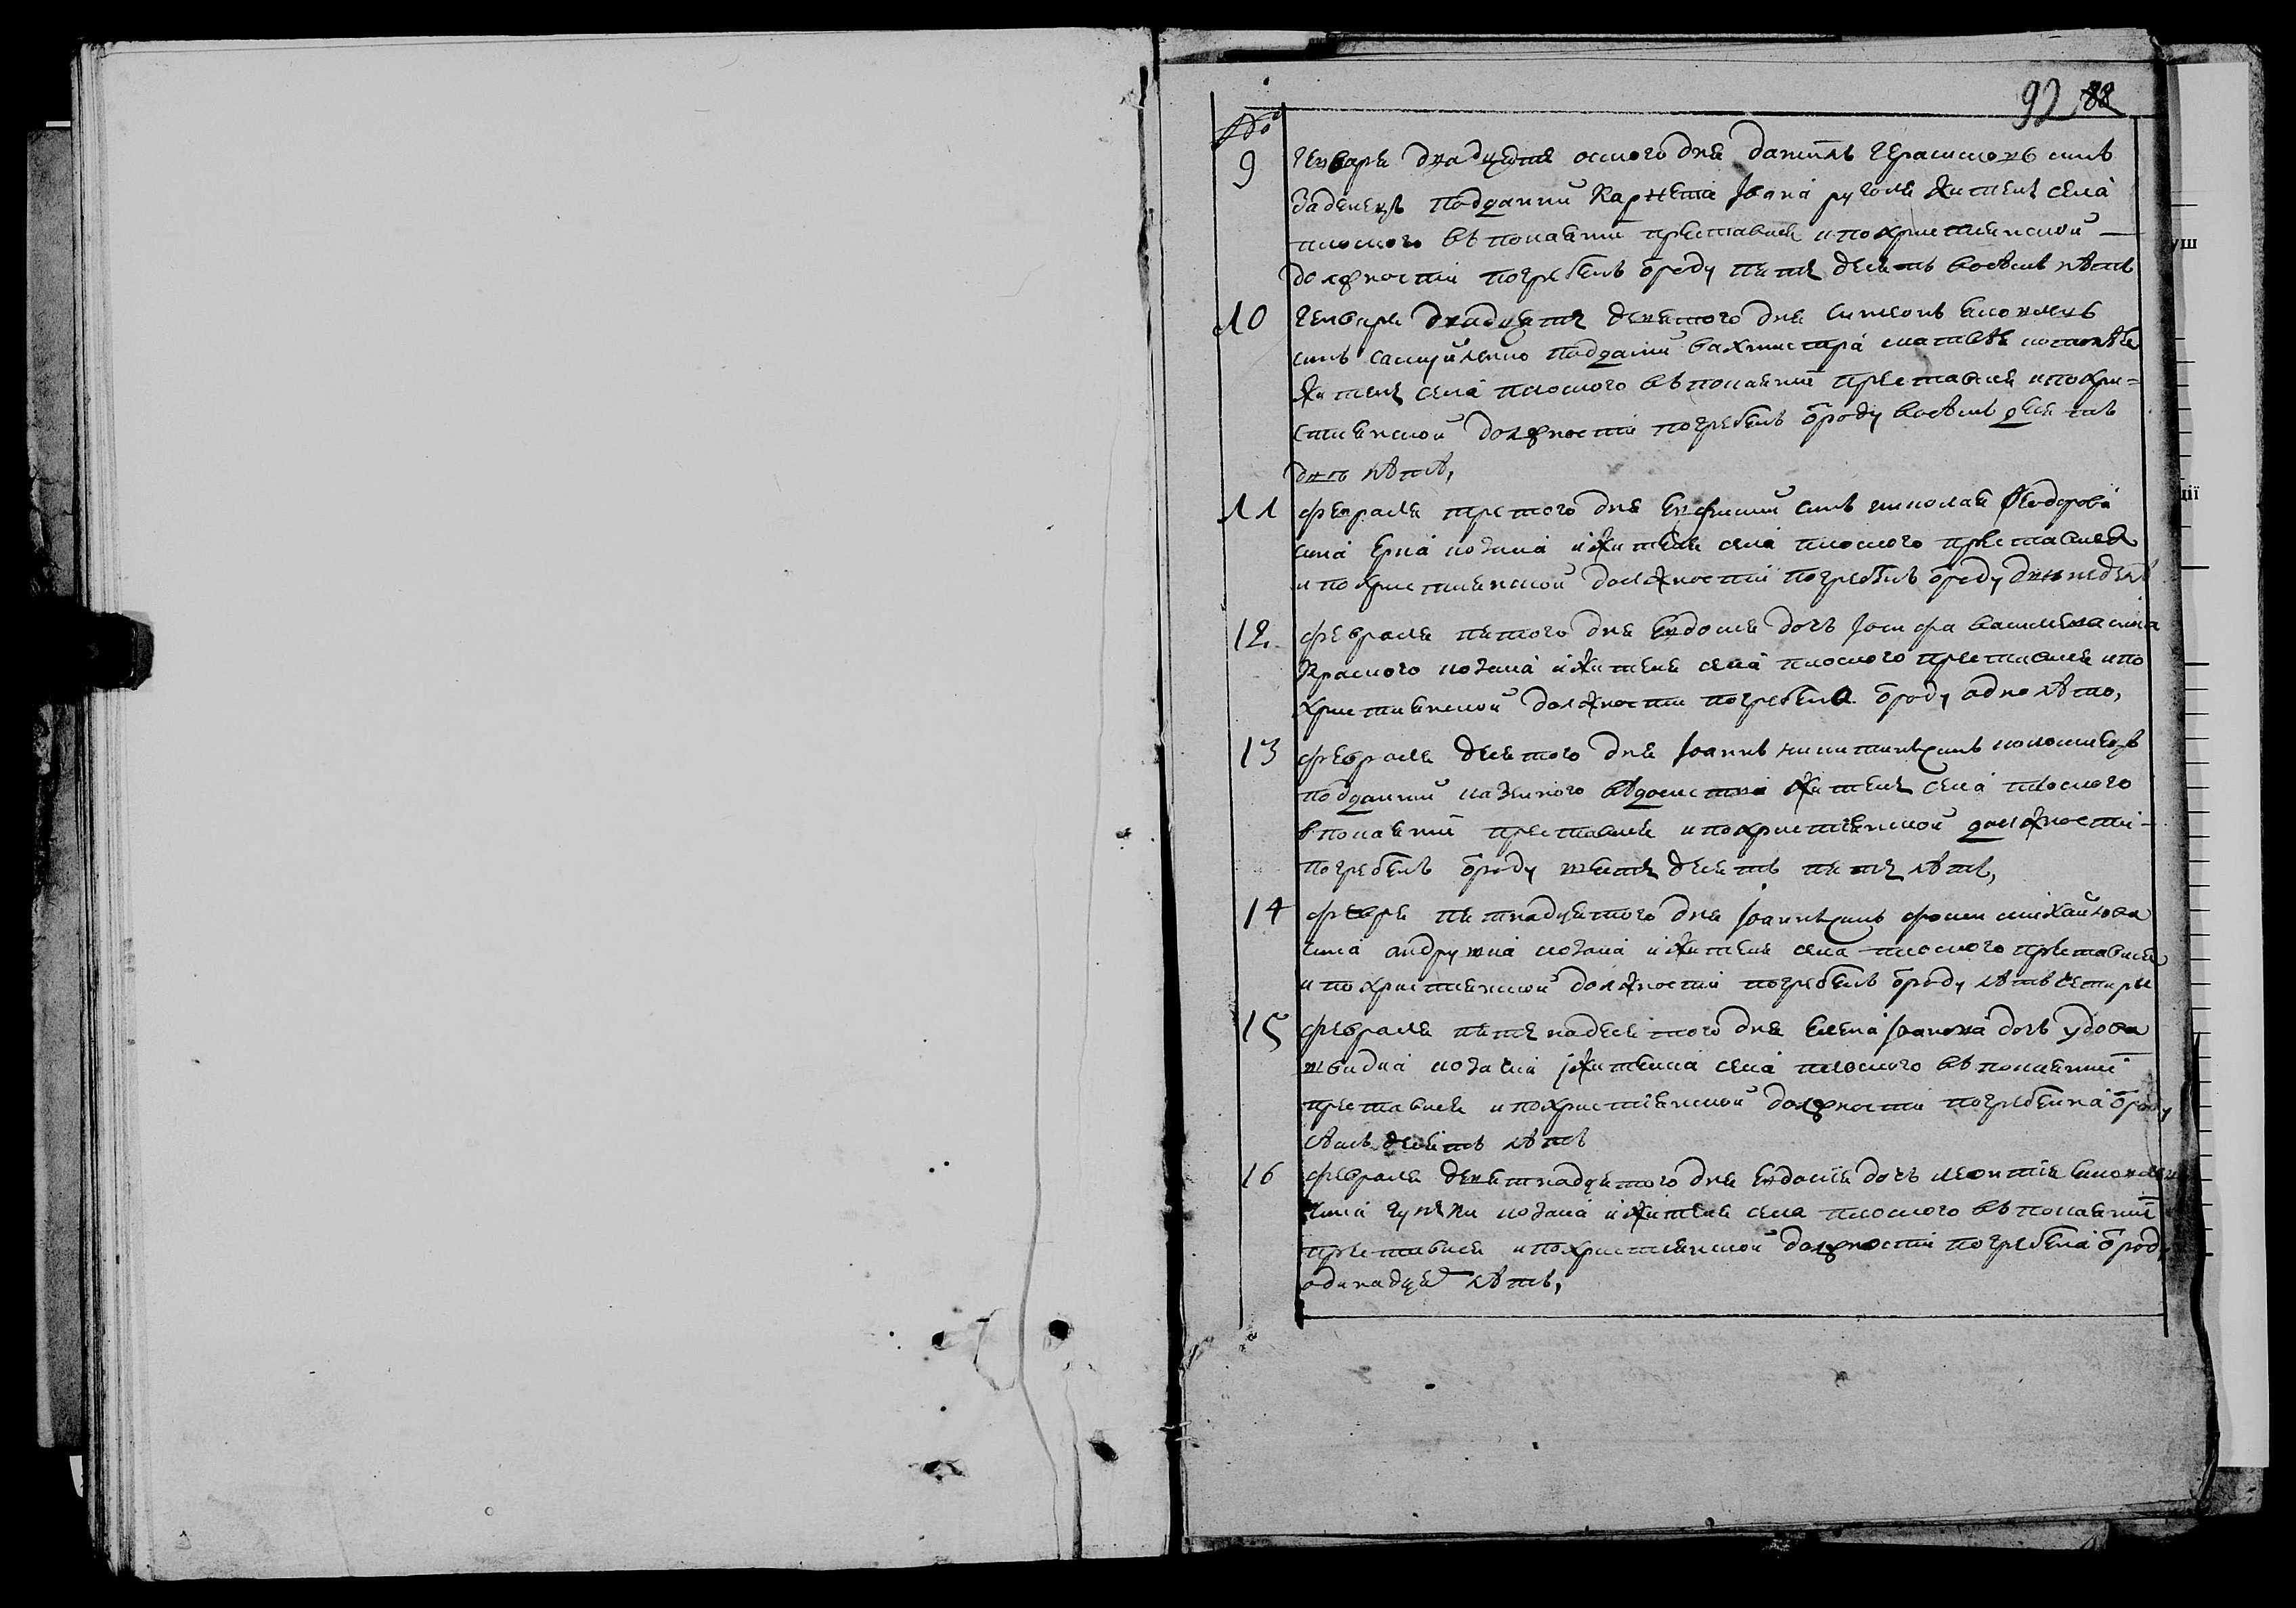 92 88
№
9 генваря двадцять осмого дня даниилъ герасимовъ синъ
Заденецъ подданий Карнета Иоана жителъ села
плоского въ покаянии преставися и по християнской
должности погребенъ ѿроду пятъ десятъ восѣмъ лѣтъ
10 генваря двадцять девятого дня симеонъ
синъ самуйленко подданий вахмистра матвѣя
жителъ села плоского въ покаянии преставися и по хри=
стиянской должности погребенъ ѿроду восѣмъ десятъ
двѣ лѣтѣ,
11 февраля третого дня евфимий синъ николая Феодорова
сина козака и жителя села плоского преставися
и по християнской должности погребенъ ѿроду двѣ недѣлѣ
12. февраля пятого дня евдокия дочъ Иосифа василиева сина
Красного козака и жителя села плоского преставися и по
християнской должности погребена ѿроду одно лѣто,
13 февраля десятого дня Иоаннъ никитинъ синъ коломиецъ
подданий казенного вѣдомства жителъ села плоского
в покаянии преставися и по християнской должности
погребенъ ѿроду шестъ десятъ пятъ лѣтъ,
14 февра пятнадцятого дня Иоаннъ синъ фоми михайлова
сина андружка козака и жителя села плоского преставися
и по християнской должности погребенъ ѿроду лѣтъ чотири
15 февраля пятънадесятого дня елена Иоанова дочъ удова
швидка козачка и жителка села плоского въ покаянии
преставися и по християнской должности погребенна ѿроду
сѣмъ десятъ лѣтъ
16 февраля девятнадцятого дня евдокия дочъ леонтия
сина козака и жителя села плоского въ покаянии
преставися и по християнской должности погребена ѿроду
одинадцят лѣтъ,